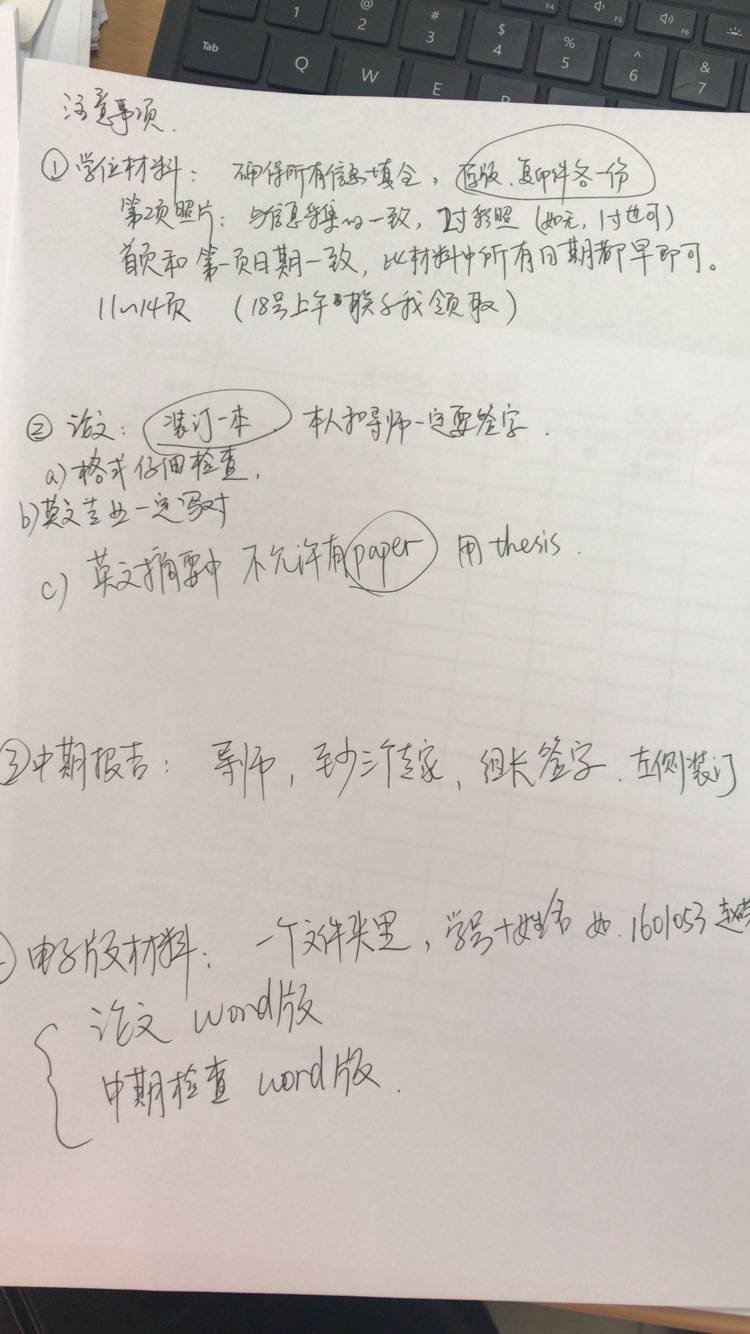 @ 2
# 3
$ 4
% 5
^ 6
& 7
1
F4
F5
F6
Tab
Q
W
E
R
注意事项.
① 学位材料: 确保所有信息填全, 原版、复印件各一份
第2页照片: 与信息采集的一致, 2寸彩照 (如无, 1寸也可)
首页和第一页日期一致, 比材料中所有日期都早即可。
11~14页 (18号上午联系我领取)
② 论文: 装订一本 本人和导师一定要签字.
a) 格式仔细检查.
b) 英文专业一定写对
c) 英文摘要中 不允许有paper 用 thesis.
③ 中期报告: 导师, 至少三个专家, 组长签字. 左侧装订
电子版材料: 一个文件夹里, 学号+姓名 如. 1601053 赵
论文 word版
中期检查 word版.